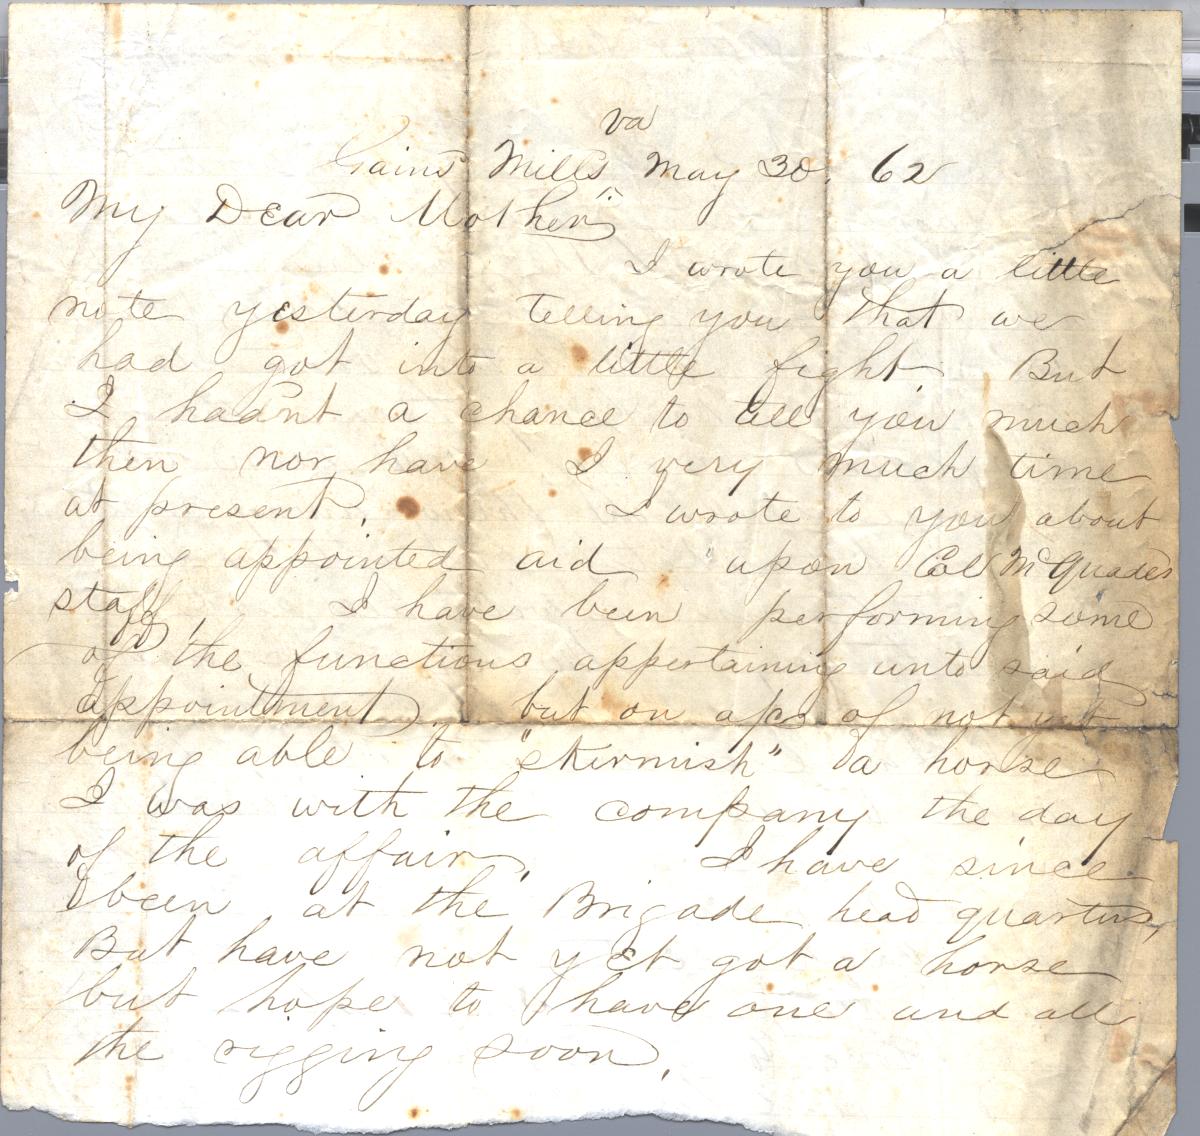 va
Gains Mills May 30. 62
My Dear Mother"
I wrote you a little
note yesterday telling you that we
had got into a little fight. But
I hadnt a chance to tell you much
then nor have I very much time
at present. I wrote to you about
being appointed aid upon Col McQuades
staff. I have been performing some
of the functions appertaining unto said
appointment. but on apc of not yet
being able to "skirmish" a horse
I was with the company the day
of the affair. I have since
been at the Brigade head quarters,
But have not yet got a horse
but hope to have one and all
the rigging soon.